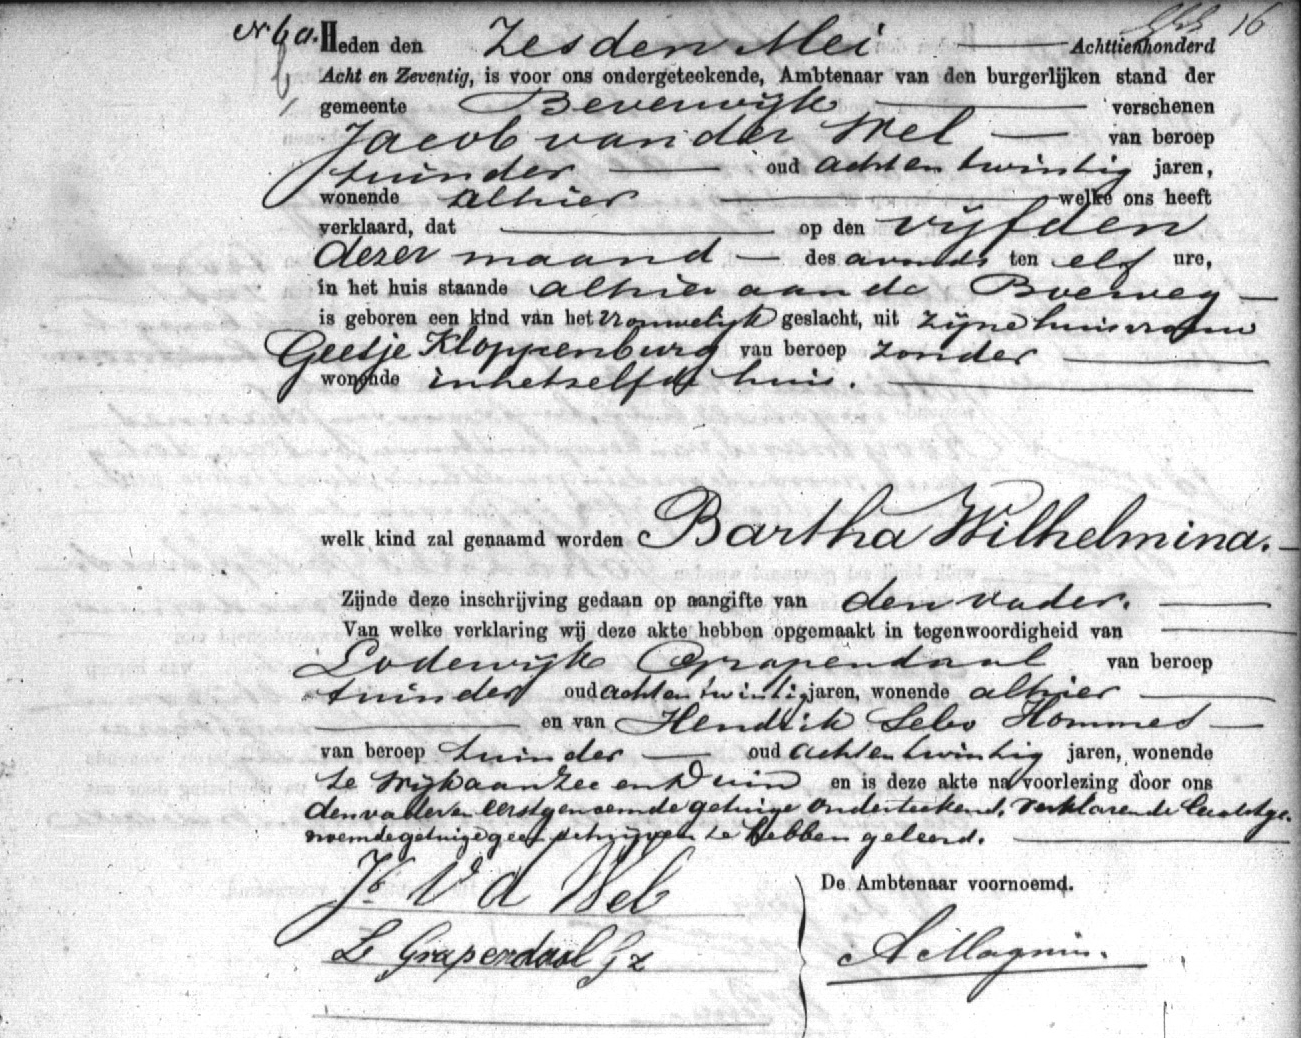 No 60. Heden den zesden Mei Achttienhonderd
Acht en Zeventig, is voor ons ondergeteekende, Ambtenaar van den burgerlijken stand der
gemeente Beverwijk verschenen
Jacob van der Wel van beroep
tuinder oud acht en twintig jaren,
wonende alhier welke ons heeft
verklaard, dat op den vijfden
dezer maand des avonds ten elf ure,
in het huis staande alhier aan de
is geboren een kind van het vrouwelijk geslacht, uit zijne huisvrouw
Geetje Kloppenburg van beroep zonder
wonende in hetzelfde huis.
welk kind zal genaamd worden Bartha Wilhelmina.
Zijnde deze inschrijving gedaan op aangifte van den vader.
Van welke verklaring wij deze akte hebben opgemaakt in tegenwoordigheid van
Lodewijk Grapendaal van beroep
tuinder oud acht en twintig jaren, wonende alhier
en van Hendrik Hommes
van beroep tuinder oud acht en twintig jaren, wonende
te Wijk aan Zee en Duin en is deze akte na voorlezing door ons
den vader en eerstgenoemde getuige onderteekend, verklarende laatstge-
noemde getuige geen schrijven te hebben geleerd.
Jb. v d Wel
De Ambtenaar voornoemd.
L Grapendaal Gz
A Magnin.
16